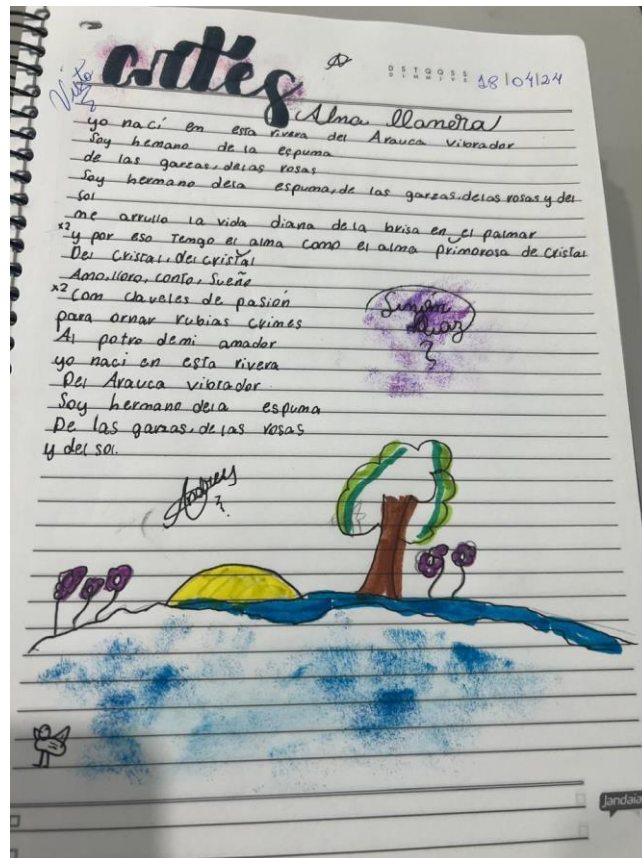 Visto
artes
D S T Q Q S S
D L M M J V S
18/04/24
Alna llanera
yo nací en esta rivera del Arauca vibrador
Soy hemano de la espuma
de las garzas, delas rosas
Soy hermano dela espuma, de las garzas, delas rosas y del
sol
me arrullo la vida diana dela brisa en el palmar
x2 y por eso tengo el alma como el alma primorosa de cristal
Del cristal, del cristal
Amo, lloro, canto, Sueño
x2 Com claveles de pasión
para ornar rubias crimes
Al potro demi amador
yo naci en esta rivera
Del Arauca vibrador
Soy hermano dela espuma
De las garzas, de las rosas
y del sol.
Simón
Diaz
Andrey
Jandaia